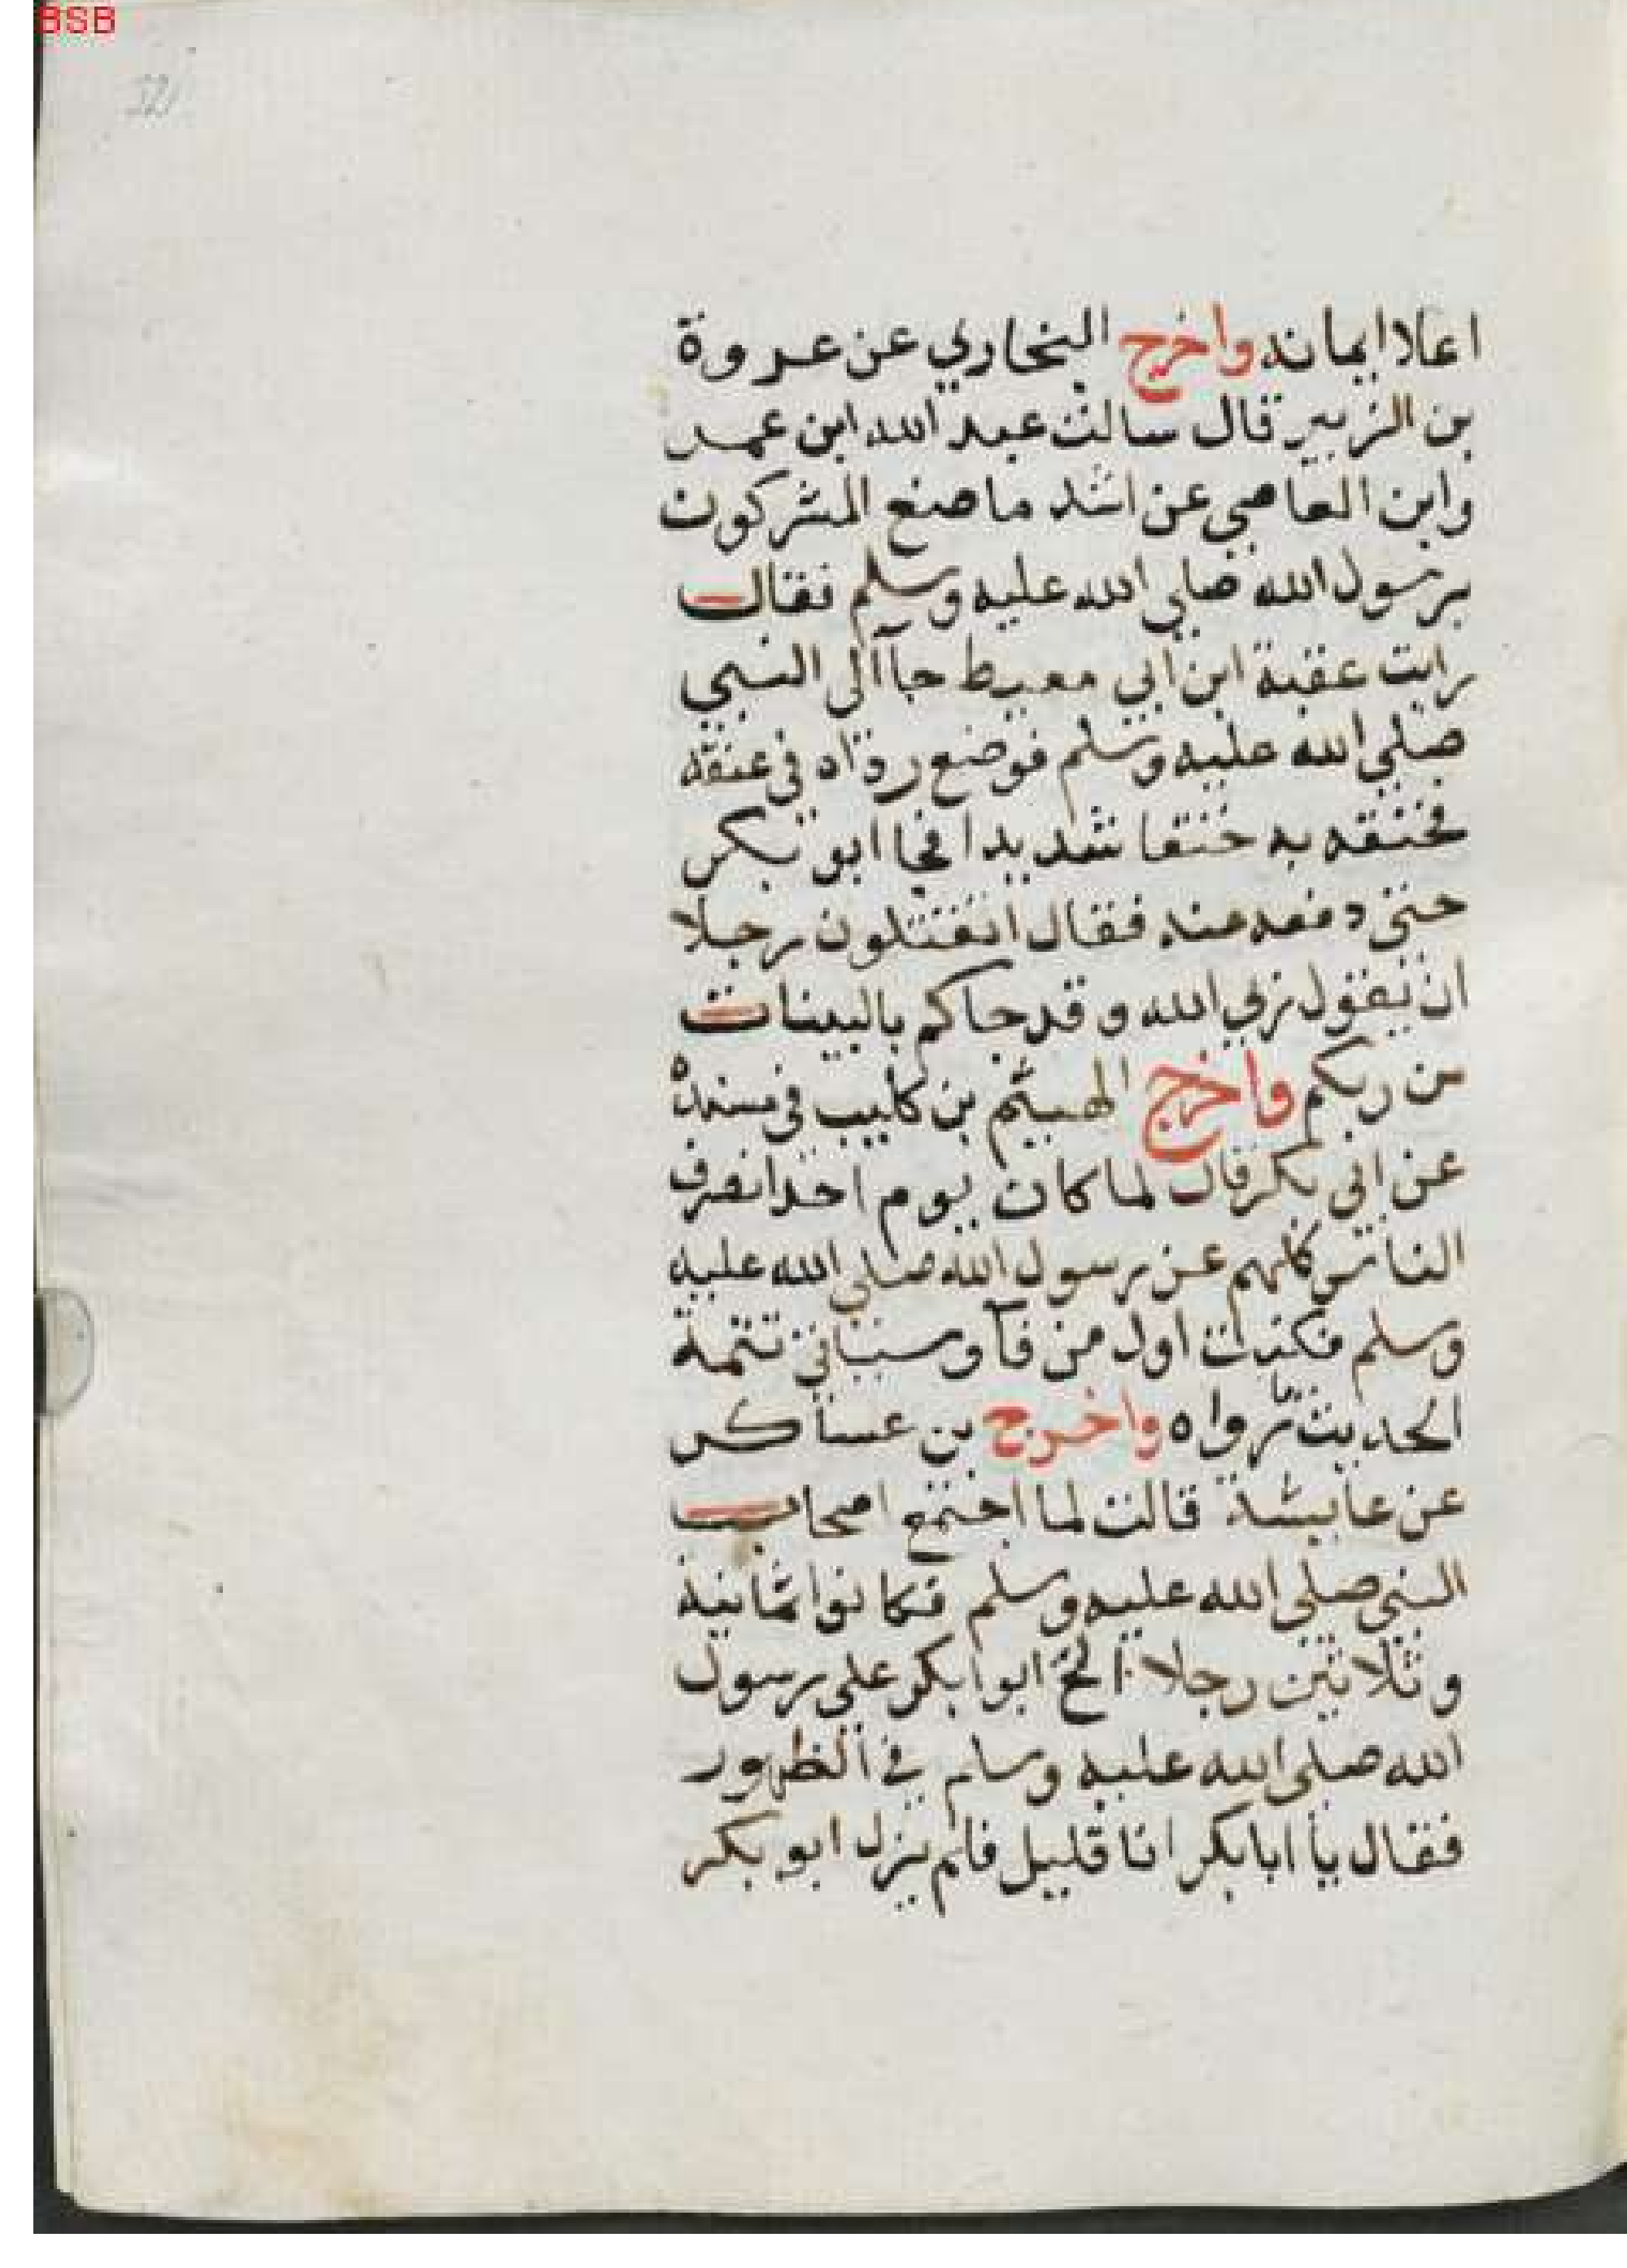 BSB
52
اعلا ايمانه واخرج البخاري عن عروة
بن الزبير قال سالت عبد الله ابن عمر
وابن العاصي عن اشد ما صنع المشركون
برسول الله صلي الله عليه وسلم فقال
رايت عقبة ابن ابي معيط جاآ الي النبي
صلي الله عليه وسلم فوضع رداه في عنقه
فخنقه به خنقا شديدا فجا ابو بكر
حتي دفعه عنه فقال اتقتلون رجلا
ان يقول ربي الله وقد جاكم بالبينات
من ربكم واخرج الهيثم بن كليب في مسنده
عن ابي بكر قال لما كان يوم احد انصرف
الناس كلهم عن رسول الله صلي الله عليه
وسلم فكنت اول من فآ وسياتي تتمة
الحديث رواه واخرج بن عساكر
عن عايشة قالت لما اجتمع اصحاب
النبي صلي الله عليه وسلم فكانوا ثمانية
وثلاثين رجلا الح ابوا بكر علي رسول
الله صلي الله عليه وسلم في الظهور
فقال يا ابا بكر انا قليل فلم يزل ابو بكر